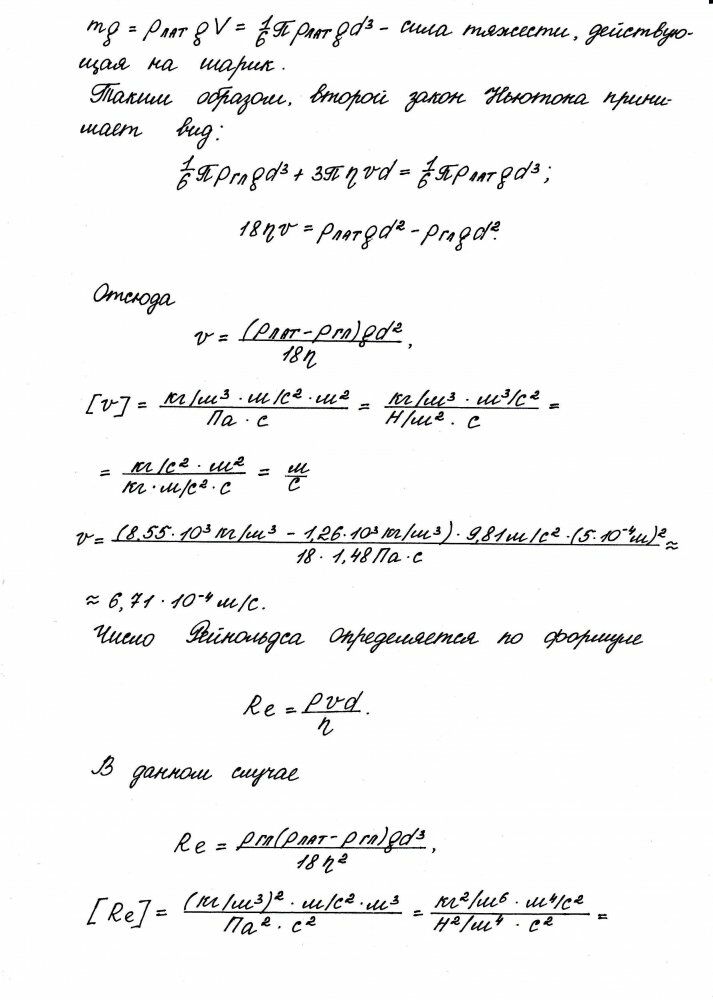 mg = ρлат g V = 1/6 π ρлат g d³ - сила тяжести, действую-
щая на шарик.
Таким образом, второй закон Ньютона прини-
мает вид:
1/6 π ρгл g d³ + 3π η v d = 1/6 π ρлат g d³;
18ηv = ρлат g d² - ρгл g d².
Отсюда
v = (ρлат - ρгл) g d² / 18η,
[v] = кг/м³ · м/с² · м² / Па · с = кг/м³ · м³/с² / Н/м² · с =
= кг/с² · м² / кг · м/с² · с = м/с
v = (8,55 · 10³ кг/м³ - 1,26 · 10³ кг/м³) · 9,81 м/с² · (5 · 10⁻⁴ м)² / 18 · 1,48 Па · с ≈
≈ 6,71 · 10⁻⁴ м/с.
Число Рейнольдса определяется по формуле
Re = ρvd / η.
В данном случае
Re = ρгл(ρлат - ρгл) g d³ / 18η²,
[Re] = (кг/м³)² · м/с² · м³ / Па² · с² = кг²/м⁶ · м⁴/с² / Н²/м⁴ · с² =